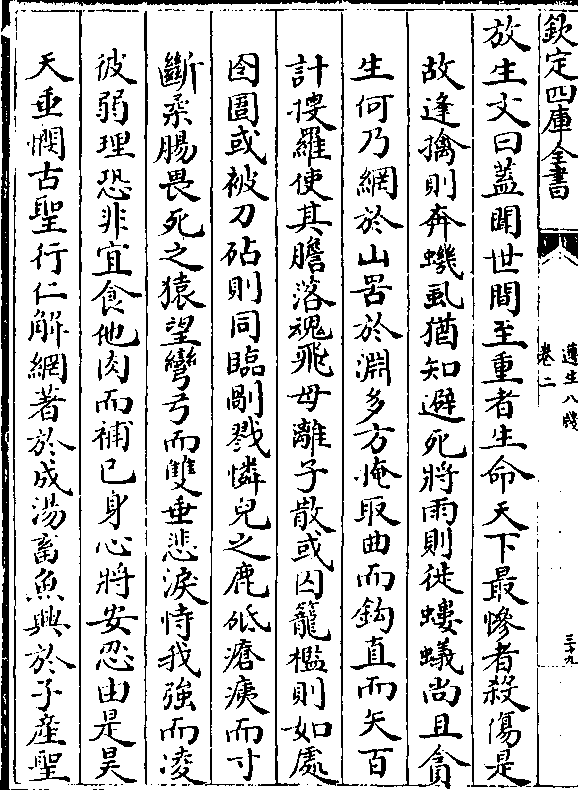 欽定四庫全書
遵生八牋
卷二
三十九
放生文曰蓋聞世間至重者生命天下最慘者殺傷是
故逢擒則奔蟣虱猶知避死將雨則徙螻蟻尚且貪
生何乃網於山罟於淵多方掩取曲而鈎直而矢百
計搜羅使其膽落魂飛母離子散或囚籠檻則如處
囹圄或被刀砧則同臨剮戮憐兒之鹿舐瘡痍而寸
斷柔腸畏死之猿望彎弓而雙垂悲淚恃我強而凌
彼弱理恐非宜食他肉而補已身心將安忍由是昊
天垂憫古聖行仁解網著於成湯畜魚興於子產聖